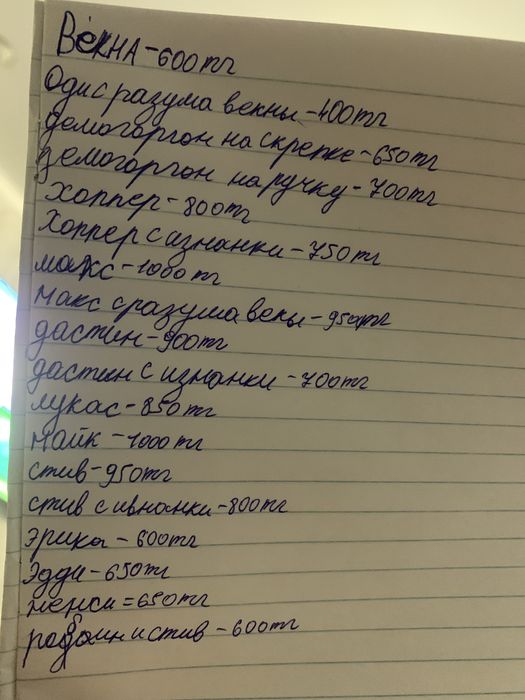 Векна-600тг
Одис разума векны-400тг
демогоргон на скрепке-650тг
демогоргон на ручку-700тг
Хоппер-800тг
Хоппер с изнанки-750тг
макс-1000тг
макс с разума вены-950тг
дастин-900тг
дастин с изнанки-700тг
лукас-850тг
майк-1000тг
стив-950тг
стив с ивнанки-800тг
эрика-600тг
Эдди-650тг
ненси=650тг
робин и стив-600тг